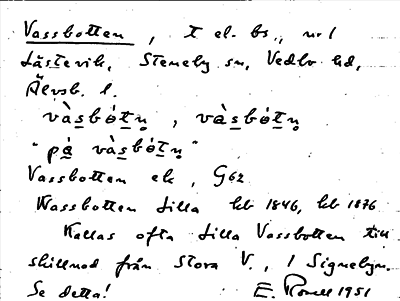 Vassbotten, t el. bs., nr 1
Låstevik, Steneby sn, Vedbo hd,
Älvsb. l.
vàsbótn̥, vàsbótn̥
"pá vàsbótn̥"
Vassbotten ek, G62
Wassbotten Lilla kb 1846, kb 1876
Kallas ofta Lilla Vassbotten till
skillnad från Stora V., i Signebyn.
Se detta! E. 1951